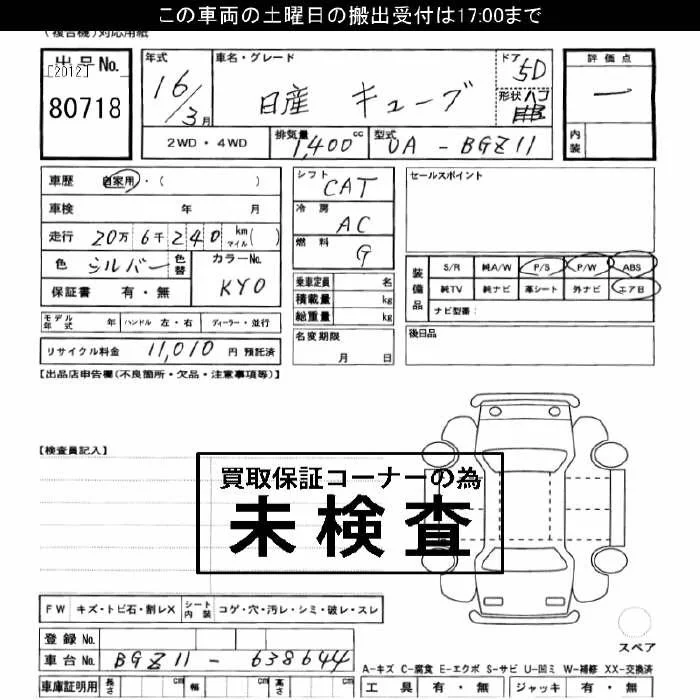 この車両の土曜日の搬出受付は17:00まで
(複合機)対応用紙
出品No. [2012] 80718
年式 16/3月
車名・グレード 日産 キューブ
ドア 5D
形状 ハコ
評価点 ー
内装
2WD・4WD
排気量 1,400cc
型式 UA-BGZ11
車歴 自家用・( )
車検 年 月
走行 20万6千240 km マイル( )
色 シルバー 色替
カラーNo. KY0
保証書 有・無
シフト CAT
冷房 AC
燃料 G
乗車定員 名
積載量 kg
総重量 kg
名変期限 月 日
セールスポイント
装備品
S/R 純A/W P/S P/W ABS
純TV 純ナビ 革シート 外ナビ エアB
ナビ型番:
後日品
モデル年式 年 ハンドル 左・右 ディーラー・並行
リサイクル料金 11,010 円 預託済
【出品店申告欄(不良箇所・欠品・注意事項等)】
【検査員記入】
買取保証コーナーの為
未検査
FW キズ・トビ石・割レX シート内装 コゲ・穴・汚レ・シミ・破レ・スレ
スペア
登録No.
車台No. BGZ11-638644
A-キズ C-腐食 E-エクボ S-サビ U-凹ミ W-補修 XX-交換済
車庫証明用 長さ cm 幅 cm 高さ cm
工具 有・無 ジャッキ 有・無